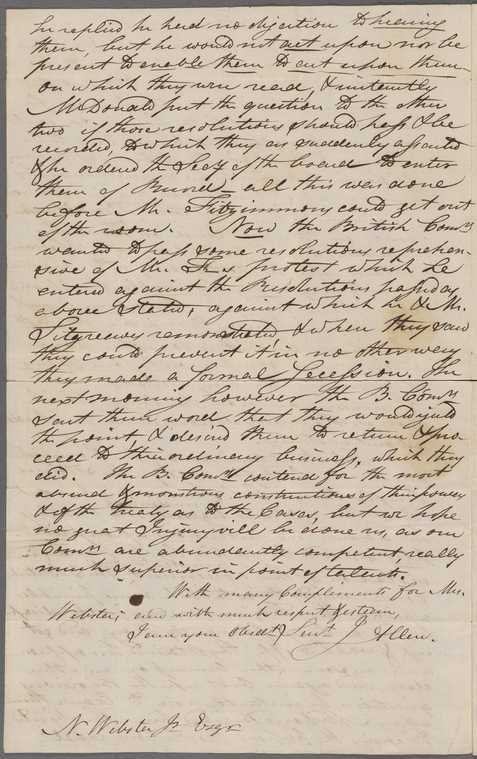 he replied he had no objection to hearing
them, but he would not act upon nor be
present to enable them to act upon them
on which they were read, & instantly
McDonald put the question to the other
two if those resolutions should pass & be
recorded, to which they as suddenly assented
& he ordered the Secy of the board to enter
them of Record — all this was done
before Mr. Fitzimmons could get out
of the room. Now the British Comrs
wanted to pass some resolutions reprehen-
sive of Mr. F's protest which he
enterd against the Resolutions passed as
above stated, against which he & Mr.
Sitgreaves remonstrated & when they saw
they could prevent it in no other way
they made a formal Secession. The
next morning however the B. Comrs
sent them word that they would quit
the point & desired them to return & pro-
ceed to their ordinary business, which they
did. The B. Comrs contend for the most
absurd & monstrous constructions of their powers
& of the Treaty as to the Cases, but we hope
no great Injury will be done us, as our
Comrs are abundantly competent, really
much superior in point of talents.
With many Compliments for Mrs.
Webster; and with much respect & esteem,
I am your Obedt Servt J Allen.
N. Webster Jr Esqr